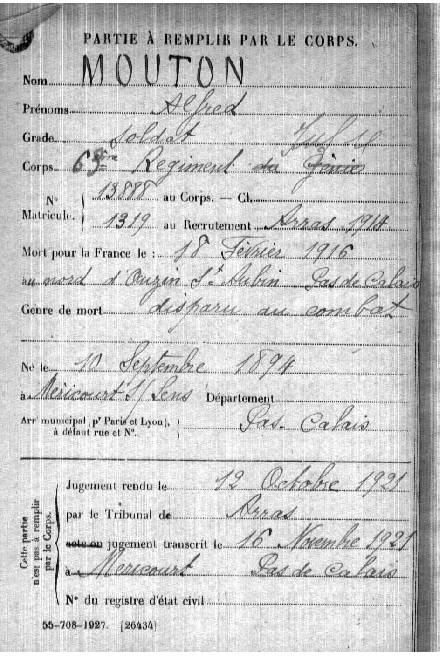 PARTIE À REMPLIR PAR LE CORPS.
Nom MOUTON
Prénoms Alfred
Grade soldat
Corps Régiment du Génie
N° 13888 au Corps. — Cl.
Matricule. 1319 au Recrutement Arras 1914
Mort pour la France le : 18 Février 1916
au nord d' St Aubin Pas de Calais
Genre de mort disparu au combat
Né le 10 Septembre 1894
à Mericourt S/ Lens Département
Arrt municipal (pr Paris et Lyon), à défaut rue et N°. Pas-Calais
Cette partie n'est pas à remplir par le Corps.
Jugement rendu le 12 Octobre 1921
par le Tribunal de Arras
acte ou jugement transcrit le 16 Novembre 1921
à Mericourt Pas de Calais
N° du registre d'état civil
55-708-1927. [26434]